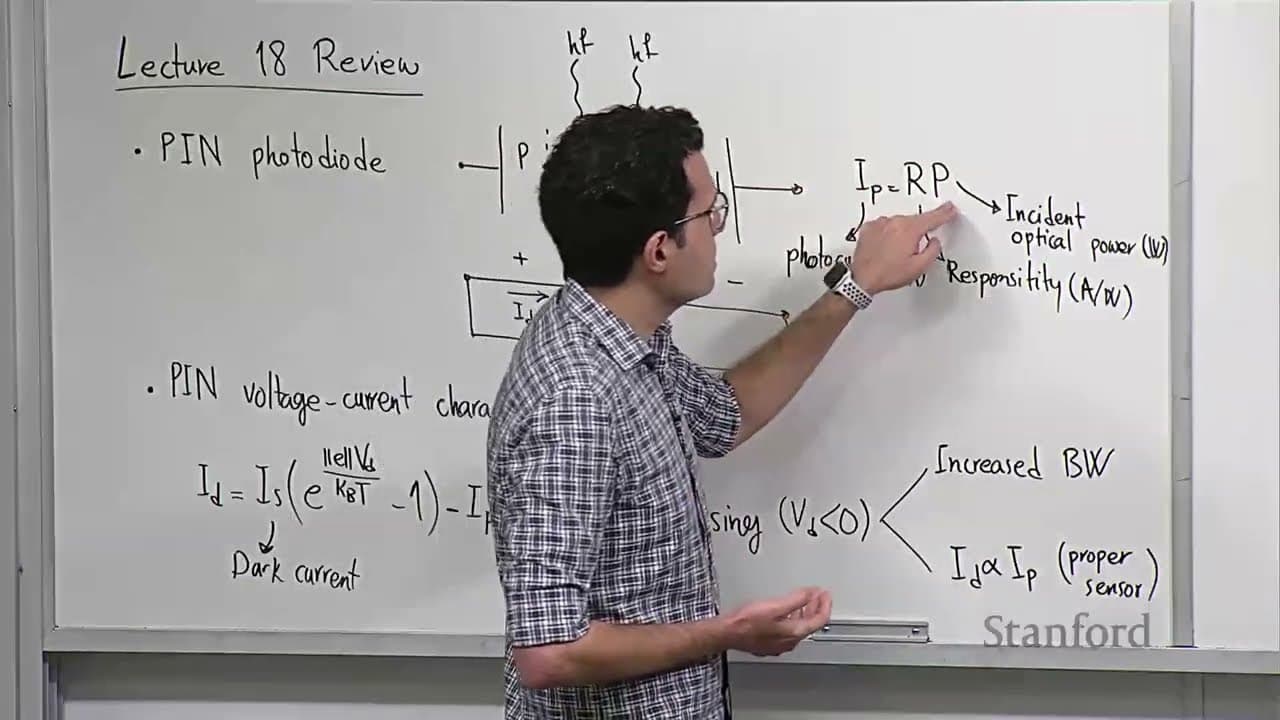 Lecture 18 Review
hf hf
• PIN photodiode
P i
I_p = RP
Incident
optical power (W)
Responsitity (A/W)
+ -
I_d
• PIN voltage-current
I_d = I_s(e^{||e||V_d/K_BT} - 1) - I
Dark current
(V_d<0)
Increased BW
I_d ∝ I_p (proper
sensor)
Stanford